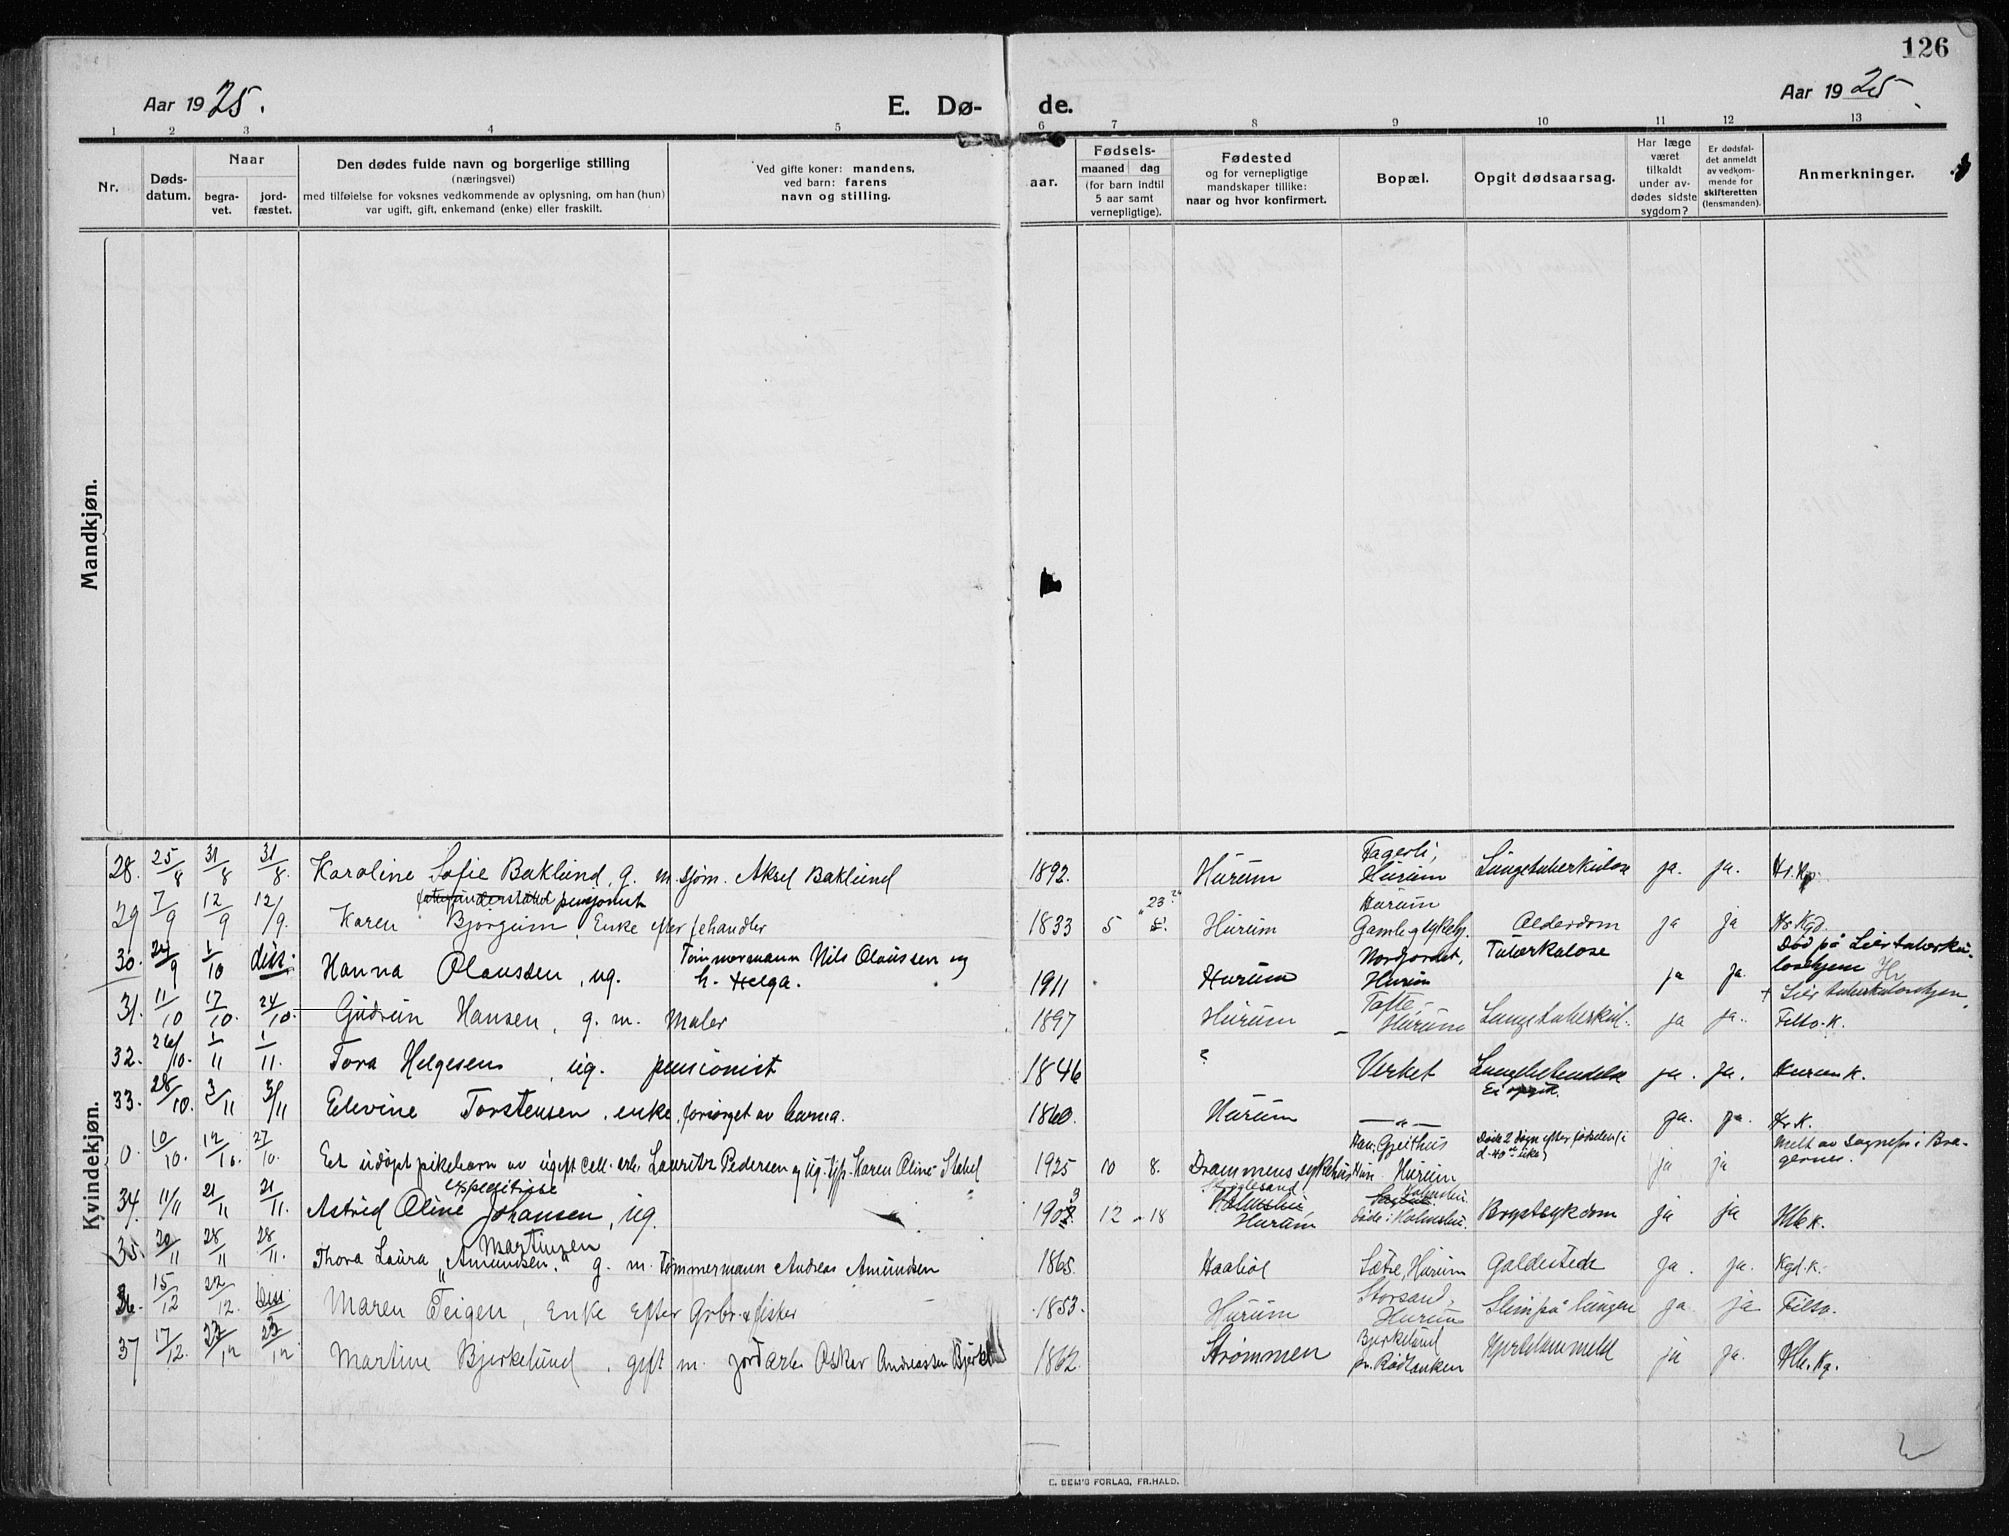 126
Aar 1925. E. Dø- de. Aar 1925.
1 2 3 4 5 6 7 8 9 10 11 12 13
Nr.
Døds-
datum.
Naar
begra-
vet.
jord-
fæstet.
Den dødes fulde navn og borgerlige stilling
(næringsvei)
med tilføielse for voksnes vedkommende av oplysning, om han (hun)
var ugift, gift, enkemand (enke) eller fraskilt.
Ved gifte koner: mandens,
ved barn: farens
navn og stilling.
aar.
Fødsels-
maaned dag
(for barn indtil
5 aar samt
vernepligtige).
Fødested
og for vernepligtige
mandskaper tillike:
naar og hvor konfirmert.
Bopæl.
Opgit dødsaarsag.
Har læge
været
tilkaldt
under av-
dødes sidste
sygdom?
Er dødsfal-
det anmeldt
av vedkom-
mende for
skifteretten
(lensmanden).
Anmerkninger.
Mandkjøn.
Kvindekjøn.
28. 25/8 31/8 31/8. Karoline Sofie Baklund, g. m. sjøm. Aksel Baklund 1892. Hurum Fagerli, Hurum Lungetuberkulose ja. ja. Hr. K.
29 7/9 12/9 12/9. pensjonist Karen Bjørgum, Enke efter fehandler 1833 5 23 Hurum Hurum Gamle Alderdom ja ja Hr. Kgd.
30. 24/9 1/10 Hanna Olaussen, ug. Tømmermann Nils Olaussen og h. Helga. 1911 Hurum Hurum Tuberkulose ja ja. Død på Lier tuberku-
losehjem Hr
31. 11/10 17/10. 24/10. Gudrun Hansen, g. m. Maler 1897 Hurum Tofte, Hurum Lungetuberkul. ja ja. † Lier tuberkulosehjem. Filtv. K.
32. 26/10. 1/11 1/11. Tora Helgesen, ug. pensionist 1846 ? Verket ja. ja. Hurum K.
33. 28/10. 3/11 3/11 Elevine Torstensen, enke, forsørget av barna. 1860. Hurum — " — Ei opgit. ja. ja. Hr. K.
0. 10/10. 12/10. 27/10. Et udøpt pikebarn av ugift cell. arb. Lauritz Pedersen og ug. Karen Oline Stabel 1925 10 8. Drammens sykehus Han: Gjeithus Hun Hurum Døde 2 døgn efter fødselen (i d. 40de uke) ja ja Melt av sognepr. i Bra-
gernes.
34. 11/11 21/11 21/11. Astrid Oline Johansen, ug. 1903 12 18 Hurum Døde i Holmsbu. Brystsykdom ja ja Hlb K.
35. 20/11 28/11 28/11. Thora Laura „Amundsen" Martinsen g. m. Tømmermann Andreas Amundsen 1865. Haabøl Sætre, Hurum Galdestede ja. ja. Kgd. K.
36. 15/12 22/12. Maren Teigen, Enke Efter Grbr. & fisker 1853. Hurum Storsand, Hurum Slim på lungen ja. ja Filtv.
37 17/12. 23/12 23/12 Martine Bjerkelund, gift m. jordarb. Oskar Andreassen 1862 Strømmen Bjerkelund pr. Rødtangen Hjertelammelse ja ja. Hlb. Kg.
E. SEM'S FORLAG, FR.HALD.